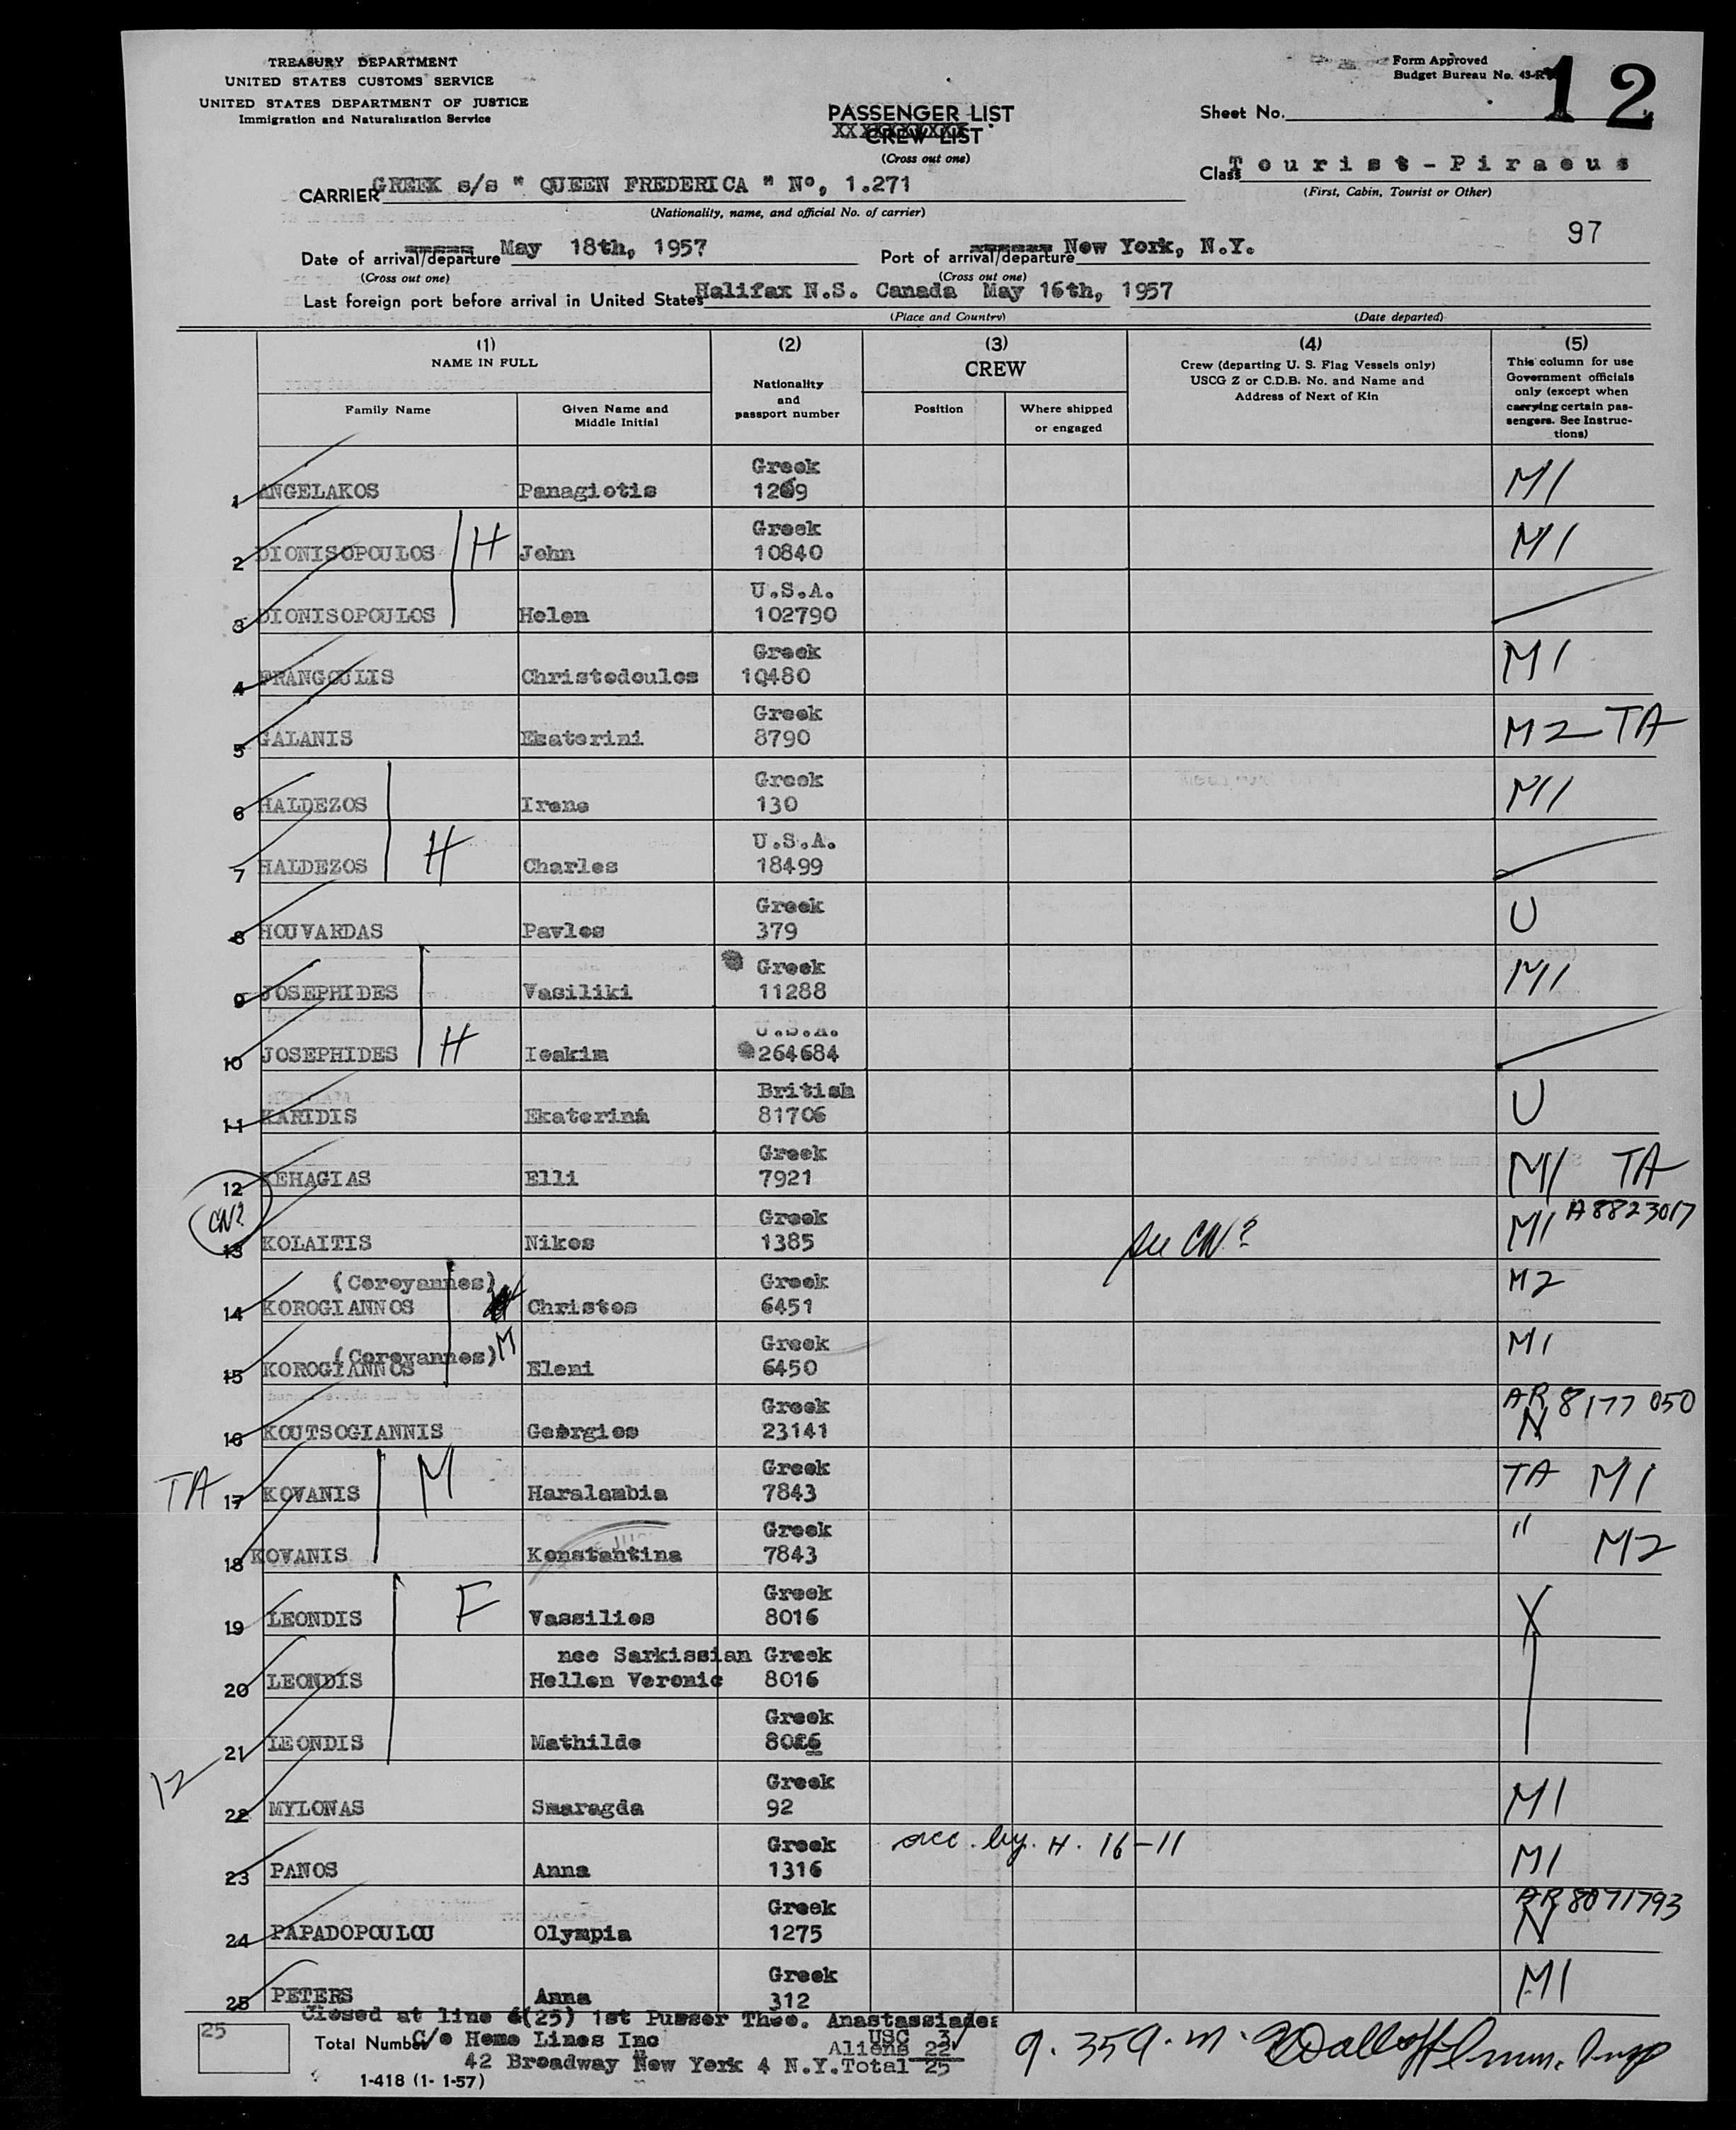 TREASURY DEPARTMENT
UNITED STATES CUSTOMS SERVICE
UNITED STATES DEPARTMENT OF JUSTICE
Immigration and Naturalization Service
Form Approved
Budget Bureau No. 43-R
12
PASSENGER LIST
CREW LIST
(Cross out one)
Sheet No.
CARRIER GREEK s/s " QUEEN FREDERICA " No, 1.271
(Nationality, name, and official No. of carrier)
Class Tourist-Piraeus
(First, Cabin, Tourist or Other)
97
Date of arrival/departure May 18th, 1957 Port of arrival/departure New York, N.Y.
(Cross out one) (Cross out one)
Last foreign port before arrival in United States Halifax N.S. Canada May 16th, 1957
(Place and Country) (Date departed)
(1) (2) (3) (4) (5)
NAME IN FULL
Family Name
Given Name and Middle Initial
Nationality and passport number
CREW
Position
Where shipped or engaged
Crew (departing U. S. Flag Vessels only)
USCG Z or C.D.B. No. and Name and
Address of Next of Kin
This column for use
Government officials
only (except when
carrying certain pas-
sengers. See Instruc-
tions)
Greek
1 ANGELAKOS Panagiotis 1269 M1
Greek
2 DIONISOPOULOS H John 10840 M1
U.S.A.
3 DIONISOPOULOS Helen 102790
Greek
4 FRANGOULIS Christodoulos 10480 M1
Greek
5 GALANIS Ekaterini 8790 M2 TA
Greek
6 HALDEZOS Irene 130 M1
U.S.A.
7 HALDEZOS H Charles 18499
Greek
8 HOUVARDAS Pavlos 379 U
Greek
9 JOSEPHIDES Vasiliki 11288 M1
U.S.A.
10 JOSEPHIDES H Ioakim 264684
British
11 KARIDIS Ekaterina 81706 U
Greek
12 KEHAGIAS Elli 7921 M1 TA
CN?
Greek A8823017
13 KOLAITIS Nikos 1385 See CN? M1
(Coroyannes) Greek
14 KOROGIANNOS Christos 6451 M2
(Coroyannes) M Greek
15 KOROGIANNOS Eleni 6450 M1
Greek AR 8177 050
16 KOUTSOGIANNIS Georgios 23141 N
Greek
TA 17 KOVANIS M Haralambia 7843 TA M1
Greek
18 KOVANIS Konstantina 7843 " M2
Greek
19 LEONDIS F Vassilios 8016 X
nee Sarkissian Greek
20 LEONDIS Hellen Veronic 8016
Greek
21 LEONDIS Mathilde 8016
12
Greek
22 MYLONAS Smaragda 92 M1
Greek acc. by. H. 16-11
23 PANOS Anna 1316 M1
Greek AR 8071793
24 PAPADOPOULOU Olympia 1275 N
Greek
25 PETERS Anna 312 M1
Closed at line (25) 1st Purser Theo. Anastassiades
25
Total Number C/o Home Lines Inc USC 3
Aliens 22
42 Broadway New York 4 N.Y. Total 25
9.35 a.m. Imm. Insp
1-418 (1-1-57)